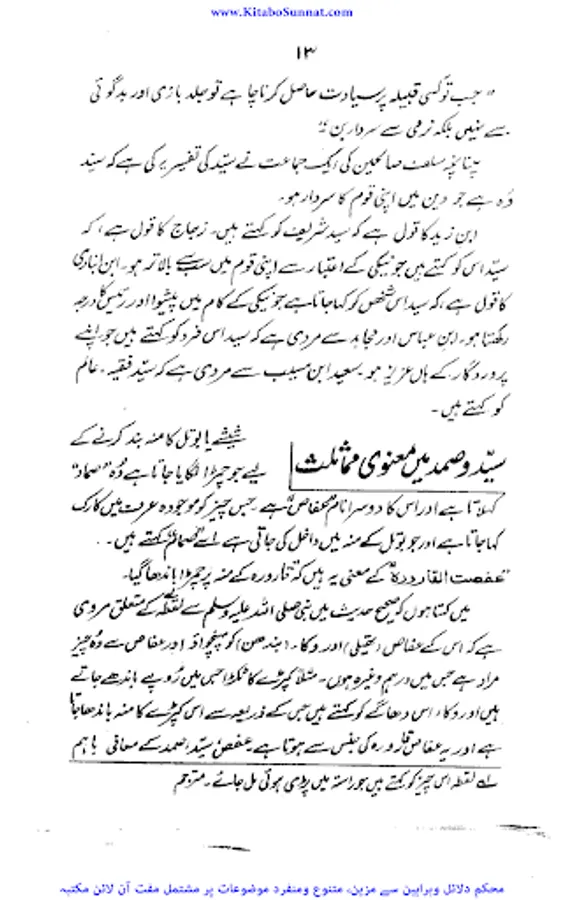 www.KitaboSunnat.com
۱۳
" جب تو کسی قبیلہ پر سیادت حاصل کرنا چاہے تو جلد بازی اور بدگوئی
سے نہیں بلکہ نرمی سے سردار بن "
چنانچہ سلف صالحین کی ایک جماعت نے سیّد کی تفسیر یہ کی ہے کہ سیّد
وُہ ہے جو دین میں اپنی قوم کا سردار ہو۔
ابن زید کا قول ہے کہ سید شریف کو کہتے ہیں۔ زجاج کا قول ہے، کہ
سیّد اس کو کہتے ہیں جو نیکی کے اعتبار سے اپنی قوم میں سب سے بالاتر ہو۔ ابن انباری
کا قول ہے، کہ سید اس شخص کو کہا جاتا ہے جو نیکی کے کام میں پیشوا اور رئیس کا درجہ
رکھتا ہو۔ ابن عباس اور مجاہد سے مروی ہے کہ سید اس فرد کو کہتے ہیں جو اپنے
پروردگار کے ہاں عزیز ہو۔ سعید ابن مسیب سے مروی ہے کہ سیّد فقیہ۔ عالم
کو کہتے ہیں۔
سیّد و صمد میں معنوی مماثلت
شیشے یا بوتل کا منہ بند کرنے کے
لیے جو چمڑا لگایا جاتا ہے وُہ "صماد"
کہلاتا ہے اور اس کا دوسرا نام "عفاص" ہے۔ جس چیز کو موجودہ عرف میں کارک
کہا جاتا ہے اور جو بوتل کے منہ میں داخل کی جاتی ہے اسے "صمام" کہتے ہیں۔
"عفصت القارورۃ" کے معنی یہ ہیں کہ قارورہ کے منہ پر چمڑا باندھا گیا۔
میں کہتا ہوں کہ صحیح حدیث میں نبی صلی اللہ علیہ وسلم سے لقطہ کے متعلق مروی
ہے کہ اس کے عفاص (تھیلی) اور وکاء (بندھن) کو پہچانو اور عفاص سے وُہ چیز
مراد ہے جس میں درہم وغیرہ ہوں۔ مثلاً کپڑے کا ٹکڑا جس میں رُوپے باندھے جاتے
ہیں اور وکاء اس دھاگے کو کہتے ہیں جس کے ذریعہ سے اس کپڑے کا منہ باندھا جاتا
ہے اور یہ عفاص قارورہ کی جنس سے ہوتا ہے عفص، سیّد، صمد کے معانی باہم
لے لقطہ اس چیز کو کہتے ہیں جو راستہ میں پڑی ہوئی مل جائے۔ مترجم
محکم دلائل وبراہین سے مزین، متنوع ومنفرد موضوعات پر مشتمل مفت آن لائن مکتبہ